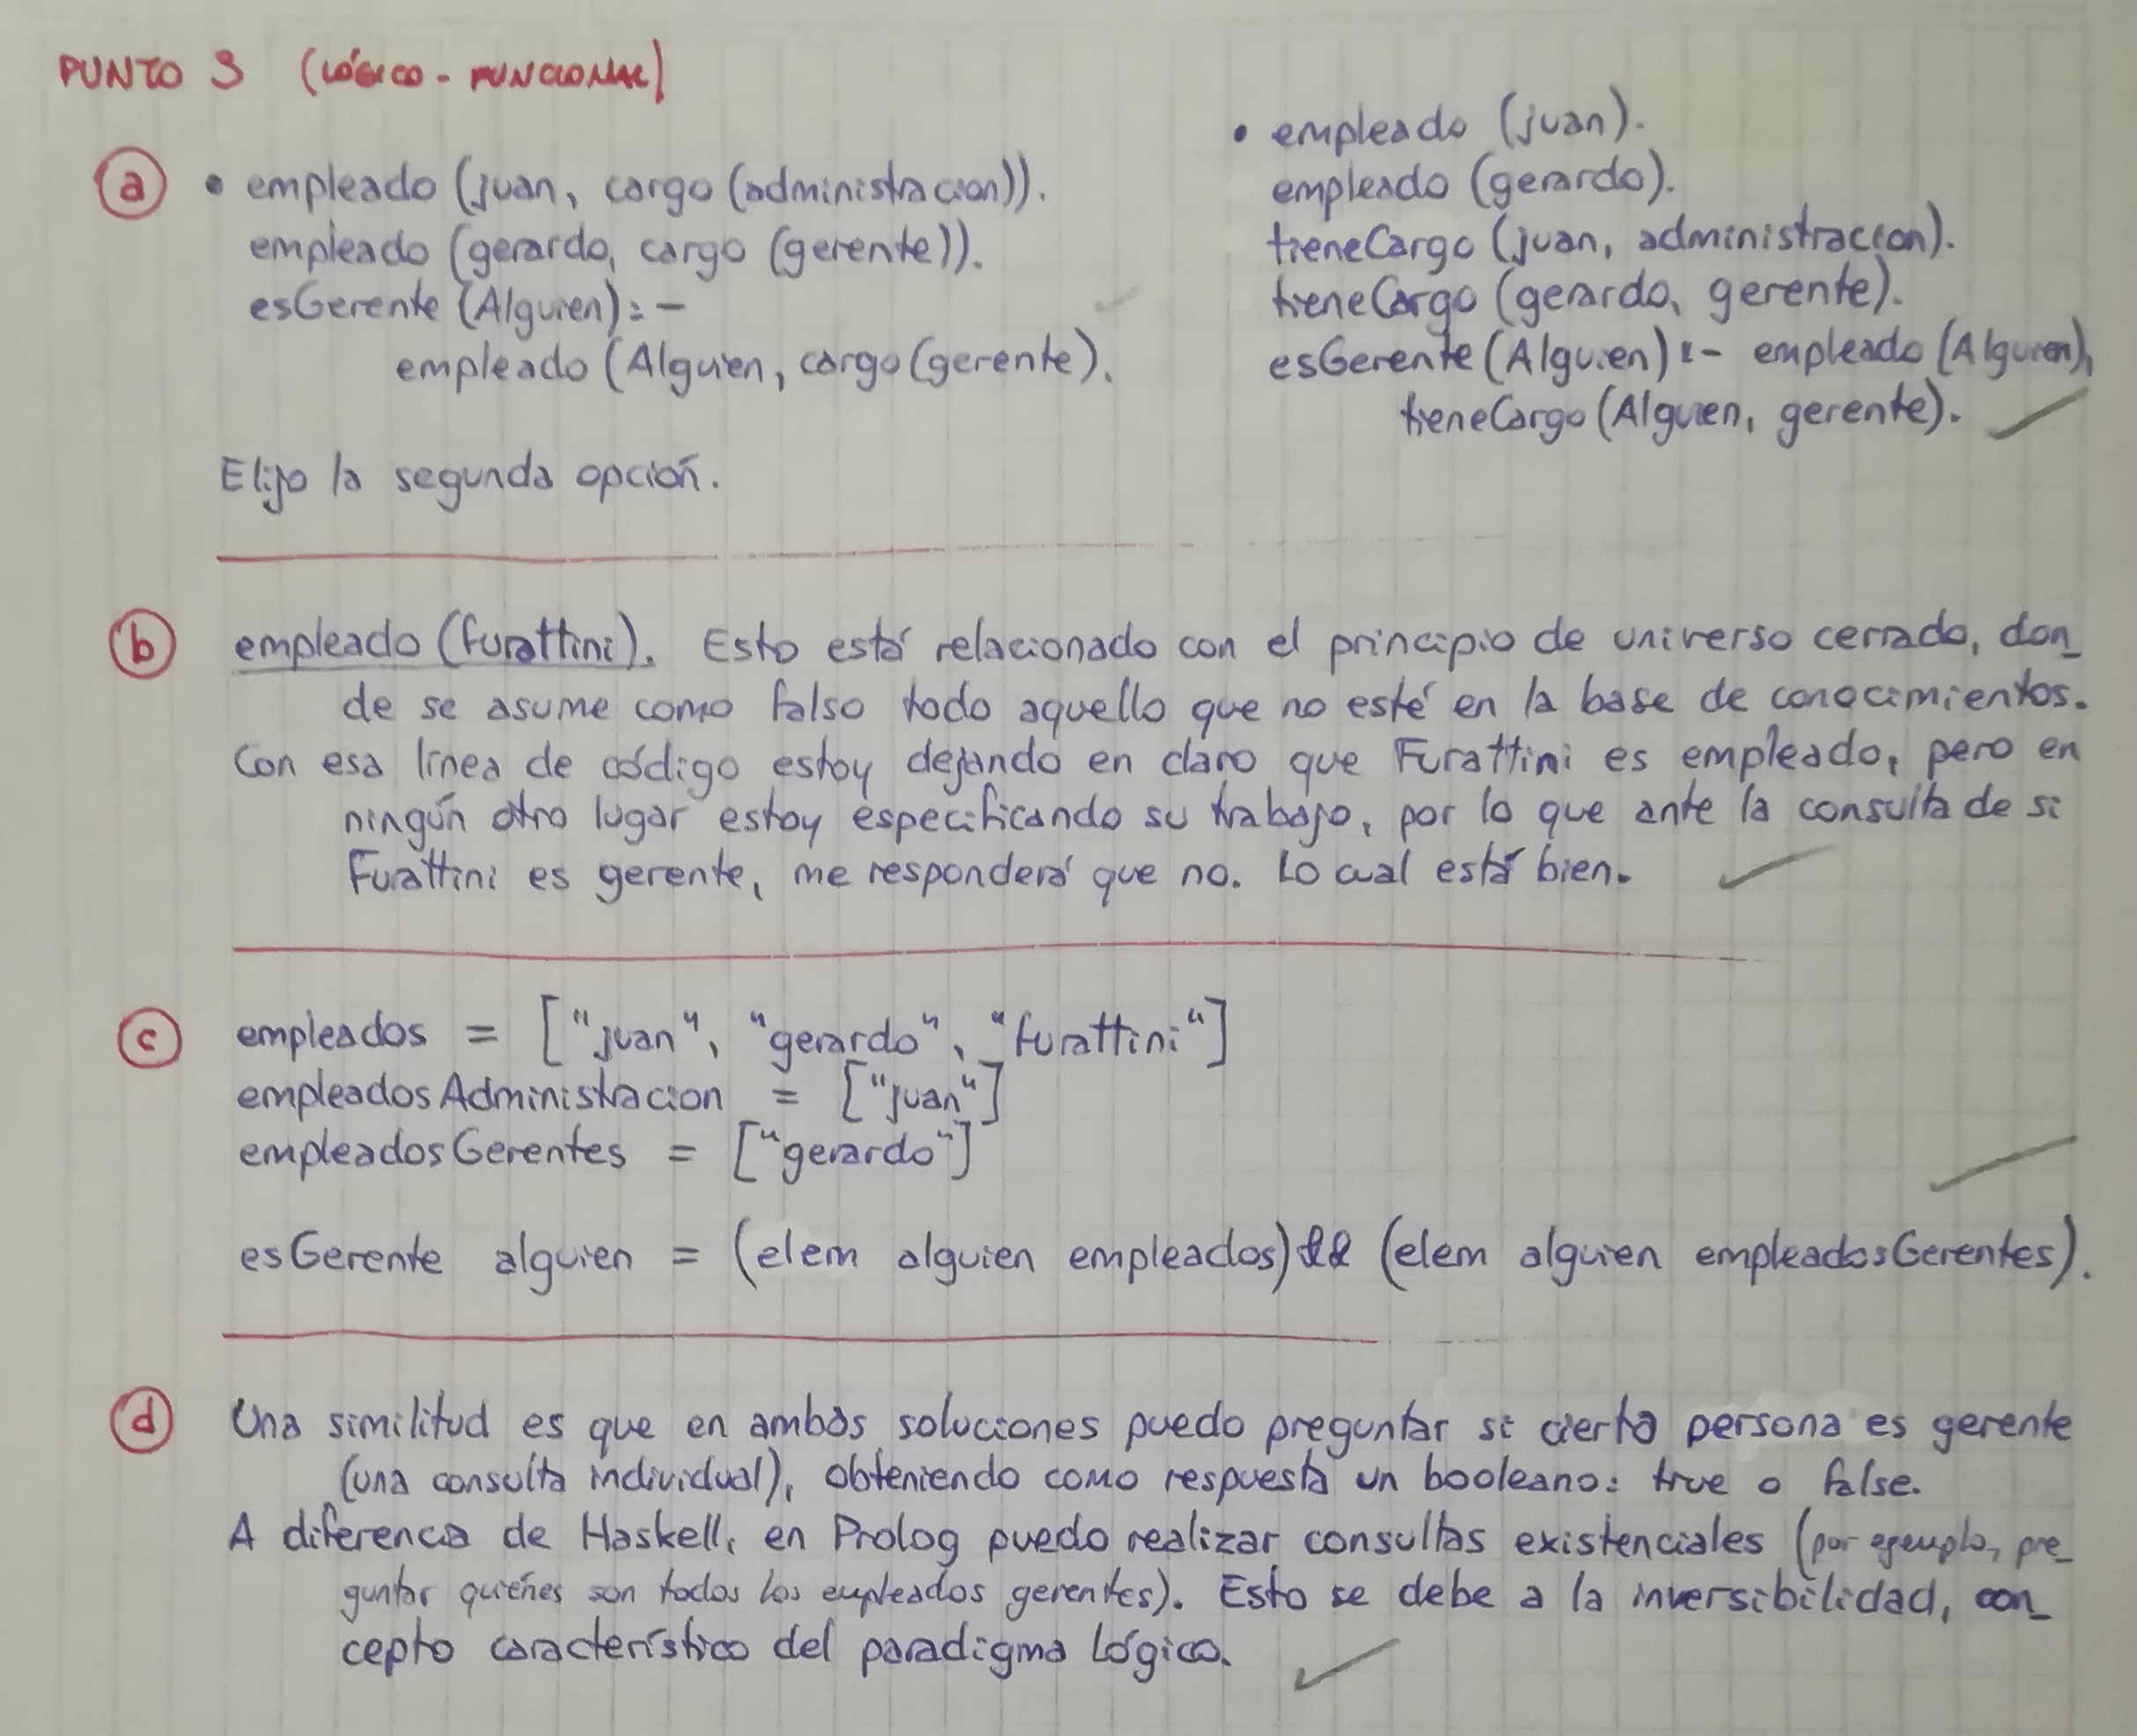 PUNTO 3 (LÓGICO - FUNCIONAL)
a
• empleado (juan, cargo (administracion)).
empleado (gerardo, cargo (gerente)).
esGerente (Alguien) :-
empleado (Alguien, cargo (gerente).
Elijo la segunda opción.
• empleado (juan).
empleado (gerardo).
tieneCargo (juan, administracion).
tieneCargo (gerardo, gerente).
esGerente (Alguien) :- empleado (Alguien),
tieneCargo (Alguien, gerente).
b
empleado (furattini). Esto está relacionado con el principio de universo cerrado, don_
de se asume como falso todo aquello que no esté en la base de conocimientos.
Con esa línea de código estoy dejando en claro que Furattini es empleado, pero en
ningún otro lugar estoy especificando su trabajo, por lo que ante la consulta de si
Furattini es gerente, me responderá que no. Lo cual está bien.
c
empleados = ["juan", "gerardo", "furattini"]
empleadosAdministracion = ["juan"]
empleadosGerentes = ["gerardo"]
esGerente alguien = (elem alguien empleados) && (elem alguien empleadosGerentes).
d
Una similitud es que en ambas soluciones puedo preguntar si cierta persona es gerente
(una consulta individual), obteniendo como respuesta un booleano: true o false.
A diferencia de Haskell, en Prolog puedo realizar consultas existenciales (por ejemplo, pre_
guntar quiénes son todos los empleados gerentes). Esto se debe a la inversibilidad, con_
cepto característico del paradigma lógico.